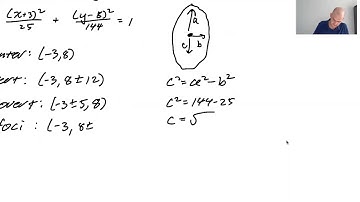 (x+3)²/25 + (y-8)²/144 = 1
nter: (-3,8)
vert: (-3, 8±12)
overt: (-3±5, 8)
foci: (-3, 8±
a
c
b
c² = a² - b²
c² = 144 - 25
c = √